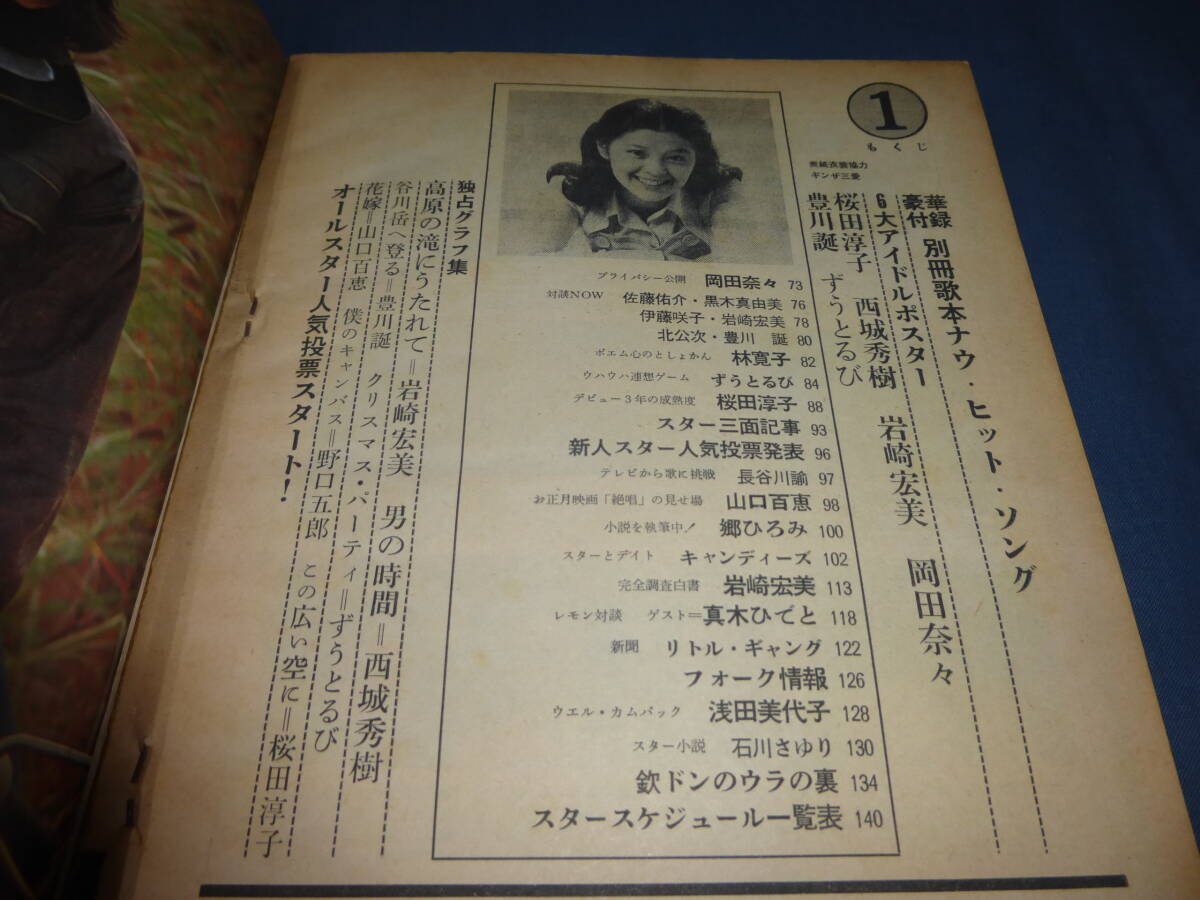 1
もくじ
表紙衣裳協力
ギンザ三愛
豪華
付録 別冊歌本ナウ・ヒット・ソング
6大アイドルポスター
桜田淳子 西城秀樹 岩崎宏美 岡田奈々
豊川誕 ずうとるび
プライバシー公開 岡田奈々 73
対談NOW 佐藤佑介・黒木真由美 76
伊藤咲子・岩崎宏美 78
北公次・豊川 誕 80
ポエム心のとしょかん 林寛子 82
ウハウハ連想ゲーム ずうとるび 84
デビュー3年の成熟度 桜田淳子 88
スター三面記事 93
新人スター人気投票発表 96
テレビから歌に挑戦 長谷川諭 97
お正月映画「絶唱」の見せ場 山口百恵 98
小説を執筆中! 郷ひろみ 100
スターとデイト キャンディーズ 102
完全調査白書 岩崎宏美 113
レモン対談 ゲスト=真木ひでと 118
新聞 リトル・ギャング 122
フォーク情報 126
ウエル・カムバック 浅田美代子 128
スター小説 石川さゆり 130
欽ドンのウラの裏 134
スタースケジュール一覧表 140
独占グラフ集
高原の滝にうたれて=岩崎宏美 男の時間=西城秀樹
谷川岳へ登る=豊川誕 クリスマス・パーティ=ずうとるび
花嫁=山口百恵 僕のキャンバス=野口五郎 この広い空に=桜田淳子
オールスター人気投票スタート!